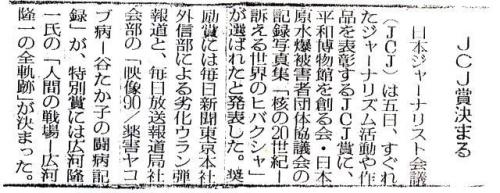 JCJ賞決まる
日本ジャーナリスト会議
(JCJ)は五日、すぐれ
たジャーナリズム活動や作
品を表彰するJCJ賞に、
平和博物館を創る会・日本
原水爆被害者団体協議会の
記録写真集「核の20世紀―
訴える世界のヒバクシャ」
が選ばれたと発表した。奨
励賞には毎日新聞東京本社
外信部による劣化ウラン弾
報道と、毎日放送報道局社
会部の「映像90/薬害ヤコ
ブ病―谷たか子の闘病記
録」が、特別賞には広河隆
一氏の「人間の戦場―広河
隆一の全軌跡」が決まった。